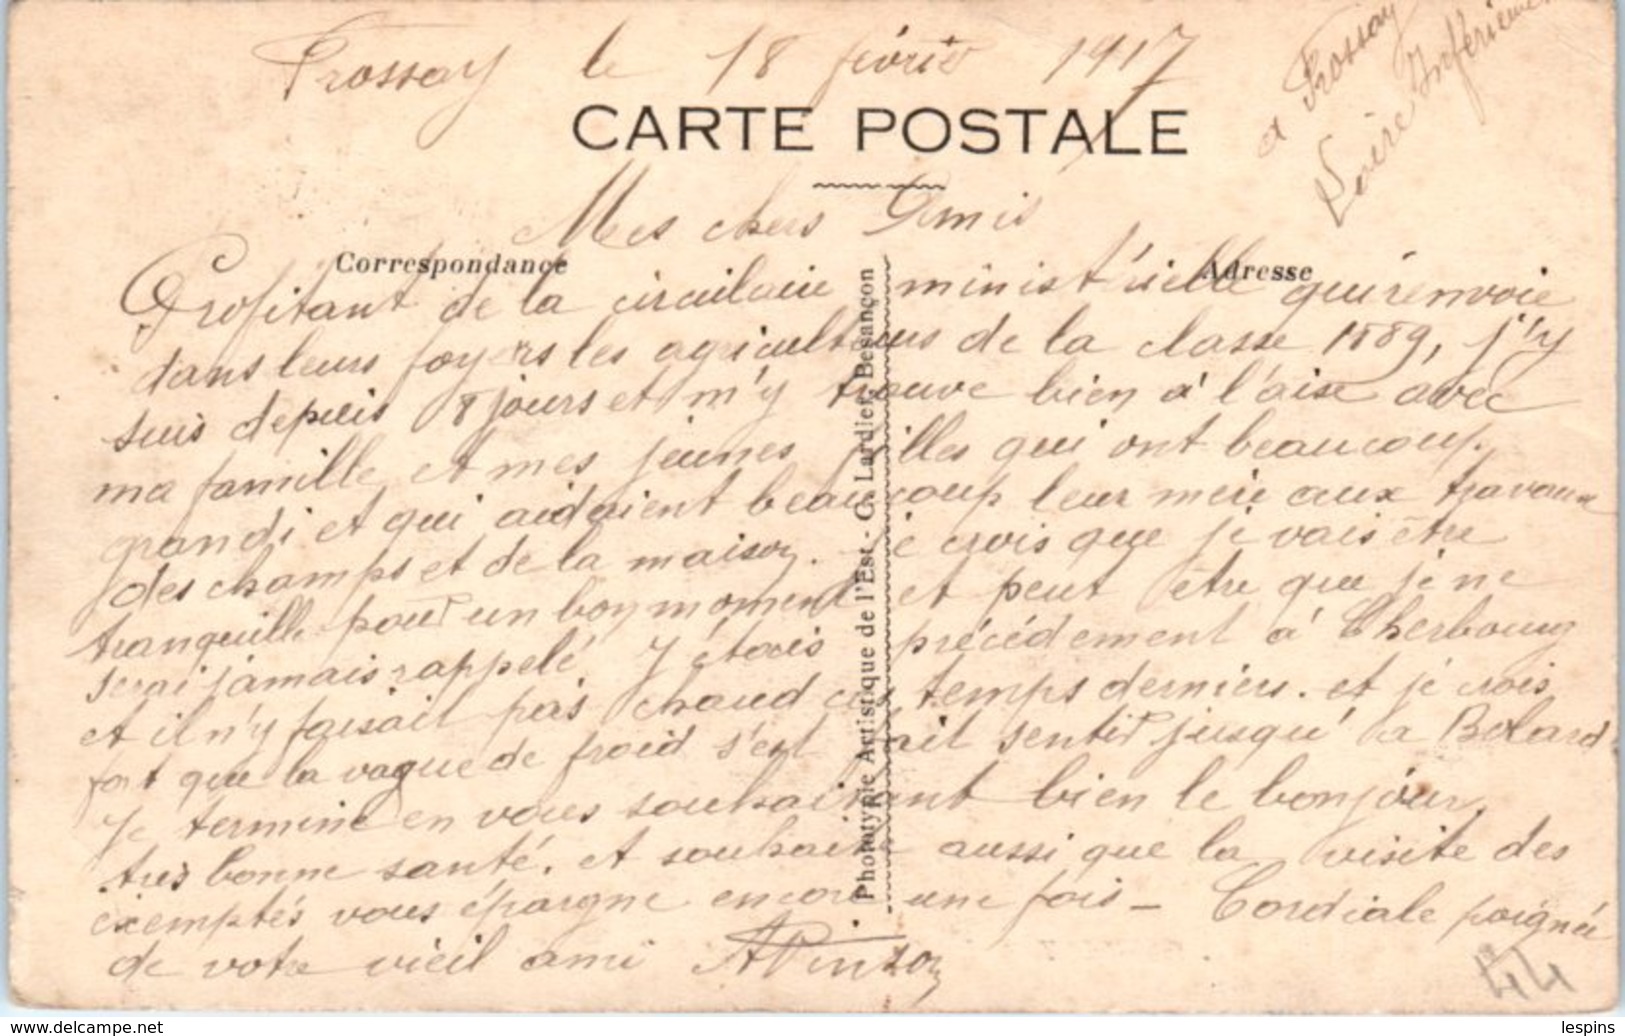 Frossay le 18 février 1917
a Frossay
Loire Inférieure
CARTE POSTALE
Mes chers Amis
Correspondance
Adresse
Profitant de la circulaire ministérielle qui renvoie
dans leurs foyers les agriculteurs de la classe 1889, j'y
suis depuis 8 jours et m'y trouve bien à l'aise avec
ma famille et mes jeunes filles qui ont beaucoup
grandi et qui aidaient beaucoup leur mère aux travaux
des champs et de la maison. Je crois que je vais être
tranquille pour un bon moment et peut être que je ne
serai jamais rappelé J'étais précédement à Cherbourg
et il n'y faisait pas chaud ces temps derniers. et je crois
fort que la vague de froid s'est fait sentir jusqu'a
Je termine en vous souhaitant bien le bonjour,
très bonne santé. et souhaite aussi que la visite des
exemptés vous épargne encore une fois - Cordiale poignée
de votre vieil ami APinson
Phototypie Artistique de l'Est - C. Lardier, Besançon
44
lespins
www.delcampe.net